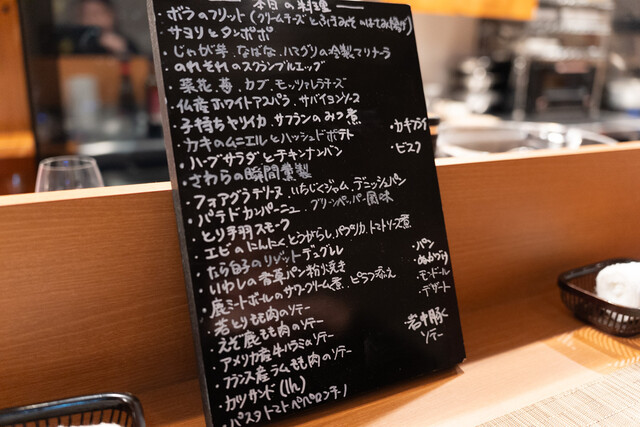 本日の料理
・ボラのフリット(クリームチーズとふきみそのはさみ揚げ)
・サヨリとタンポポ
・じゃが芋、なばな、ハマグリの冷製マリナーラ
のれそれのスクランブルエッグ
・菜花、苺、カブ、モッツァレラチーズ
・仏産ホワイトアスパラ、サバイヨンソース
・子持ちヤリイカ、サフランのみつ煮
・カキのムニエルとハッシュドポテト
・カキフライ
・ハーブサラダとチキンナンバン
・ビスク
・さわらの瞬間薫製
フォアグラテリーヌ、いちじくジャム、デニッシュパン
・パテドカンパーニュ、グリーンペッパー風味
・とり手羽スモーク
・エビのにんにく、とうがらし、パプリカ、トマトソース煮
・たら白子のリゾットデュグレレ
・いわしの香草パン粉焼き
・鹿ミートボールのサワークリーム煮、ピラフ添え
・パン
・ぬかづけ
・モンドール
・デザート
若とりもも肉のソテー
・えぞ鹿もも肉のソテー
・アメリカ産牛ハラミのソテー
・フランス産ラムもも肉のソテー
岩中豚
ソテー
・カツサンド(1h)
・パスタトマトペペロンチーノ